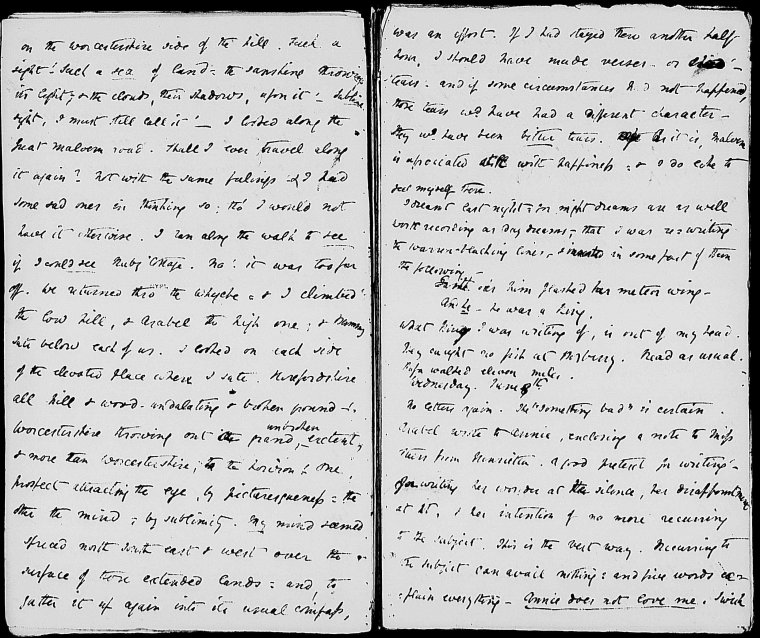 on the Worcestershire side of the hill. Such a
sight! Such a sea of land: the sunshine throwing
its light, & the clouds, their shadows, upon it! Sublime
sight, I must still call it! — I looked along the
great Malvern road. Shall I ever travel along
it again? Not with the same feelings & I had
some sad ones in thinking so; tho' I would not
have it otherwise. I ran along the walk to see
if I could see Ruby Cottage. No! it was too far
off. We returned thro' the Whyche: & I climbed
the low hill, & Arabel the high one; &
sate below each of us. I looked on each side
of the elevated place where I sate. Herefordshire
all hill & wood - undulating & broken ground -!
Worcestershire throwing out the grand, unbroken extent,
& more than Worcestershire, to the horizon! One
prospect attracting the eye, by picturesqueness: the
other the mind; by sublimity. My mind seemed
spread north south east & west over the
surface of those extended lands: and, to
gather it up again into its usual compass,
was an effort. If I had stayed there another half
hour, I should have made verses - or
tears: and if some circumstances had not happened
those tears wd have had a different character -
they wd have been bitter tears. As it is, Malvern
is associated with happiness: & I do like to
see myself there.
I dreamt last night, for night dreams are as well
worth recording as day dreams, that I was re-writing
the lines, & inserted in some part of them
the following -
o'er him flashed her meteor wing -
And he - he was a King,
What King I was writing of, is out of my head.
They caught no fish at . Read as usual.
Papa walked eleven miles.
Wednesday. June 8th
No letters again. The "something bad" is certain.
Arabel wrote to Annie, enclosing a note to Miss
from Henrietta. A good pretext for writing!
for writing her wonder at the silence, her disappointment
at it, & her intention of no more recurring
to the subject. This is the best way. Recurring to
the subject can avail nothing: and five words ex-
-plain everything - Annie does not love me. I wish